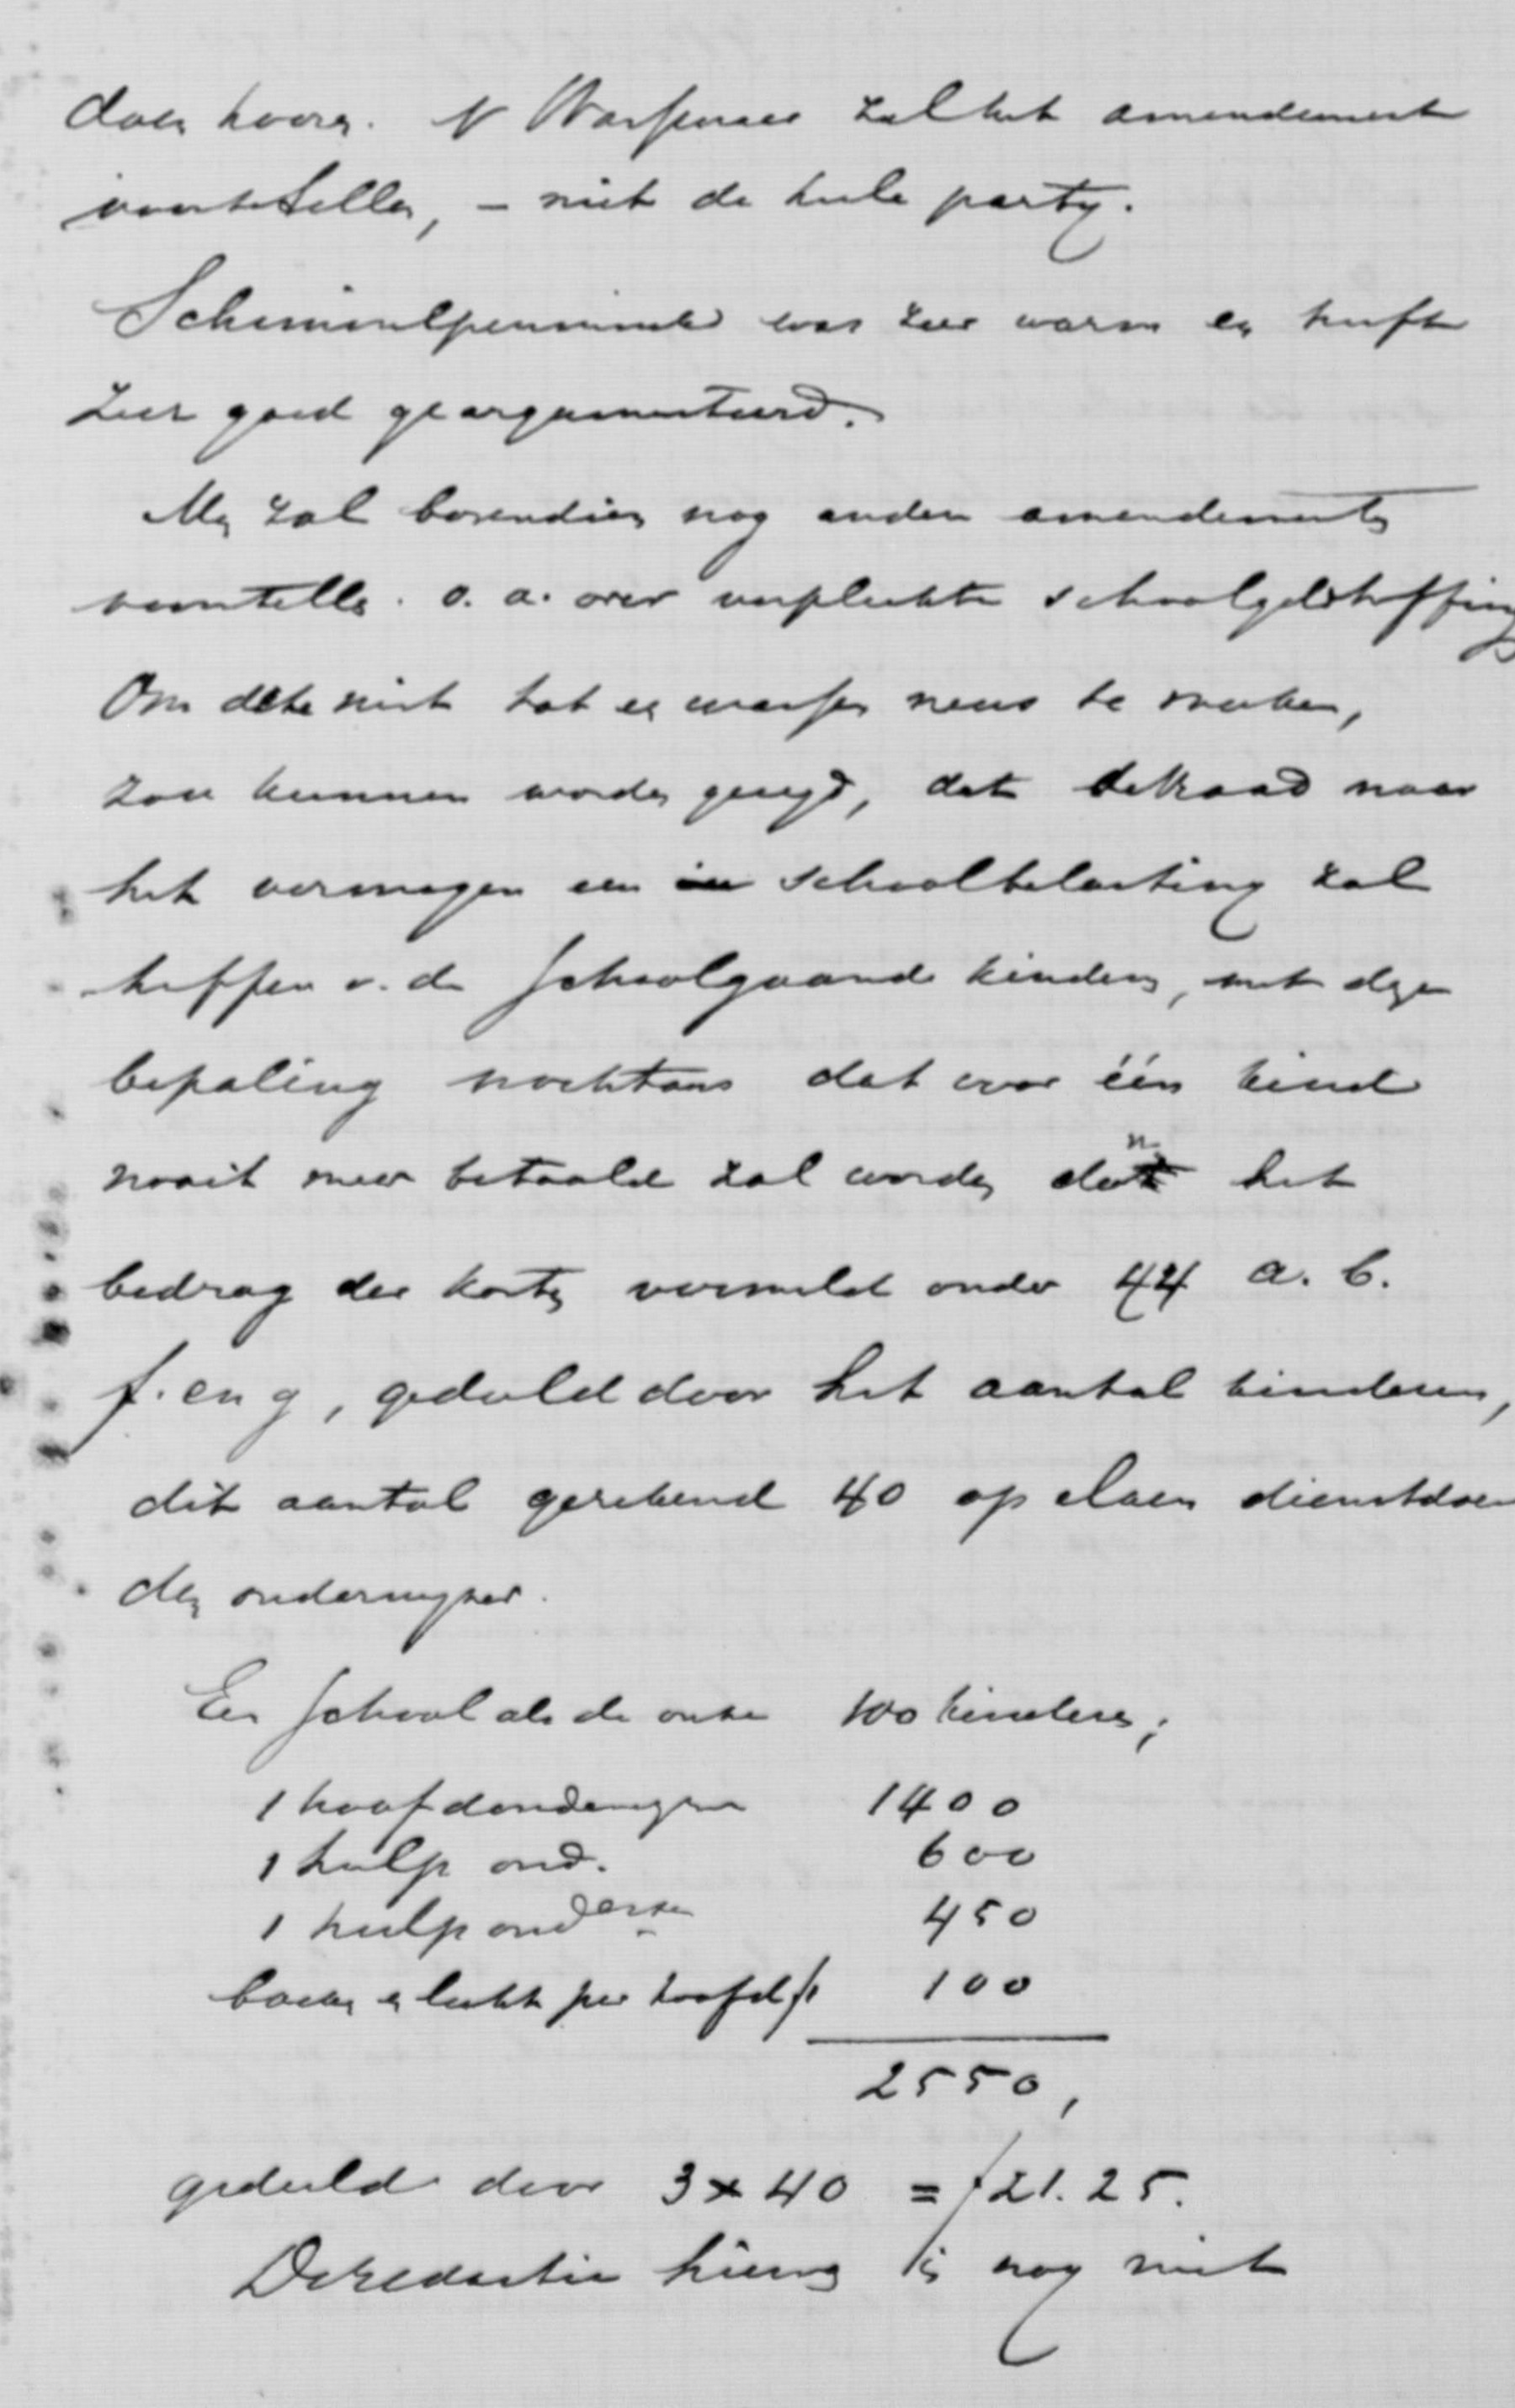 doen hooren. N zal het amendement
voorstellen, – niet de heele party.
Schimmelpenninck was zeer warm en heeft
zeer goed geargumenteerd.
Mz zal bovendien nog andere amendementen
voorstellen. o. a. over verplichte schoolgeldheffing
Om deze niet tot een wassen neus te maken,
zou kunnen worden gezegd, dat de Raad naar
het vermogen een schoolbelasting zal
heffen v. de schoolgaande kinderen, met deze
bepaling nochtans dat over één kind
nooit meer betaald zal worden dan het
bedrag der kosten vermeld onder 44 a. b.
f. en g, gedeeld door het aantal kinderen,
dit aantal gerekend 40 op elken dienstdoen
den onderwyzer.
Een school als de onze 100 kinderen;
1 hoofdonderwyzer 1400
1 hulp ond. 600
1 hulp onderse 450
boeken en licht per hoofd f1 100
2550,
gedeeld door 3 x 40 = f21.25.
De redactie hierv is nog niet